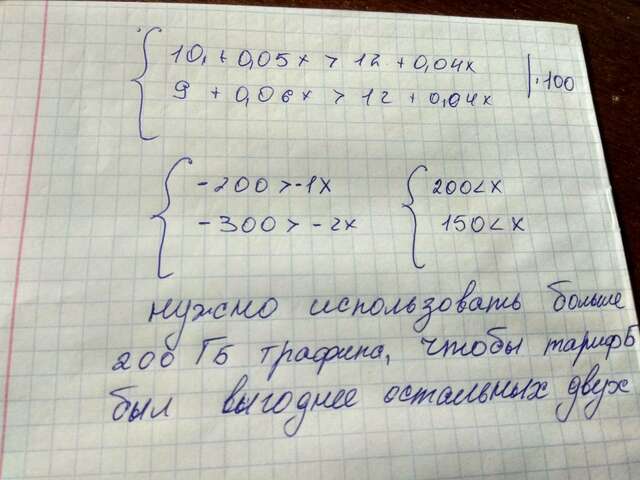 10 + 0,05x > 12 + 0,04x | ·100
9 + 0,06x > 12 + 0,04x
-200 > -1x 200 < x
-300 > -2x 150 < x
нужно использовать больше
200 ГБ трафика, чтобы тариф Б
был выгоднее остальных двух